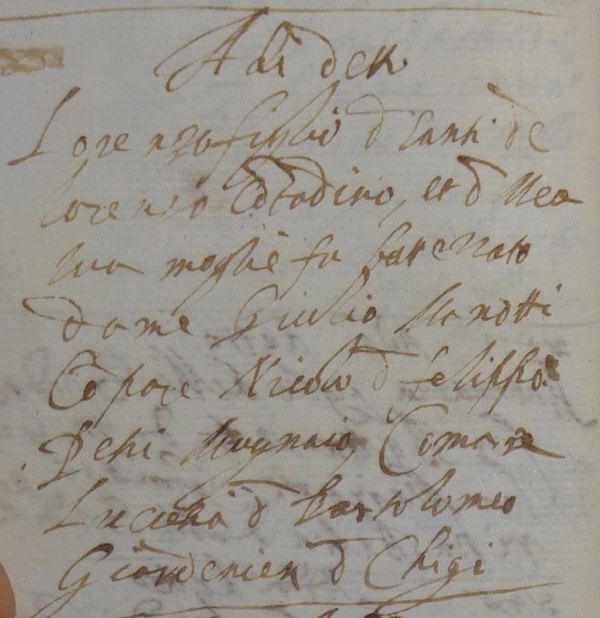 A dì detto
Lorenzo figlio d Santi de
lorenzo Cotadino, et d Mea
sua moglie fu batezzato
da me Giulio Manotti
Copare Nicolo d felippo
Mugnaio Comare
Lucietta d Bartolomeo
d Chigi